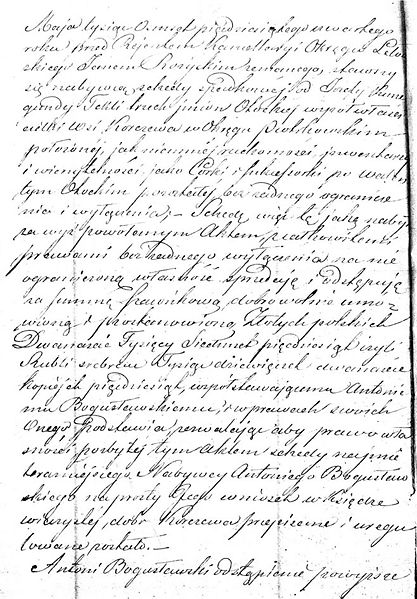 Maja tysiąc ośmset pięćdziesiątego czwartego
roku przed Rejentem Kancellaryi Okręgu
skiego Janem Rożyckim zeznanego, stawszy
się nabywcą schedy spadkowej od Józefy Kune-
gondy Tekli trzech imion Otockiej współwłaści-
cielki Wsi Korczewa w Okręgu Piotrkowskim
położonej, jak niemniej ruchomości, inwentarza
i wierzytelności, jako Córki i Sukcessorki po Walen-
tym Otockim pozostałej bez żadnego ogranicze-
nia i wyłączenia, – Schedę więc tę jaką naby-
za wyż powołanym Aktem, z całkowitemi
prawami bez żadnego wyłączenia na nie
ograniczoną własność sprzedaję i odstępuję
za summę szacunkową, dobrowolnie umó-
wioną i postanowioną, Złotych polskich
Dwanaście Tysięcy Siedmset pięćdziesiąt czyli
Rubli srebrem Tysiąc dziewięćset dwanaście
kopiejek pięćdziesiąt, współstawającemu Antonie-
mu Bogusławskiemu, i w prawach swoich
Onego podstawia, zezwalając aby prawo wła-
sności pozbytej tym Aktem schedy na imie
teraźniejszego Nabywcy Antoniego Bogusław-
skiego na prosty Jego wniosek w Księdze
wieczystej, dóbr Korczewa przepisane i uregu-
lowane zostało. –
Antoni Bogusławski odstąpienie powyższe